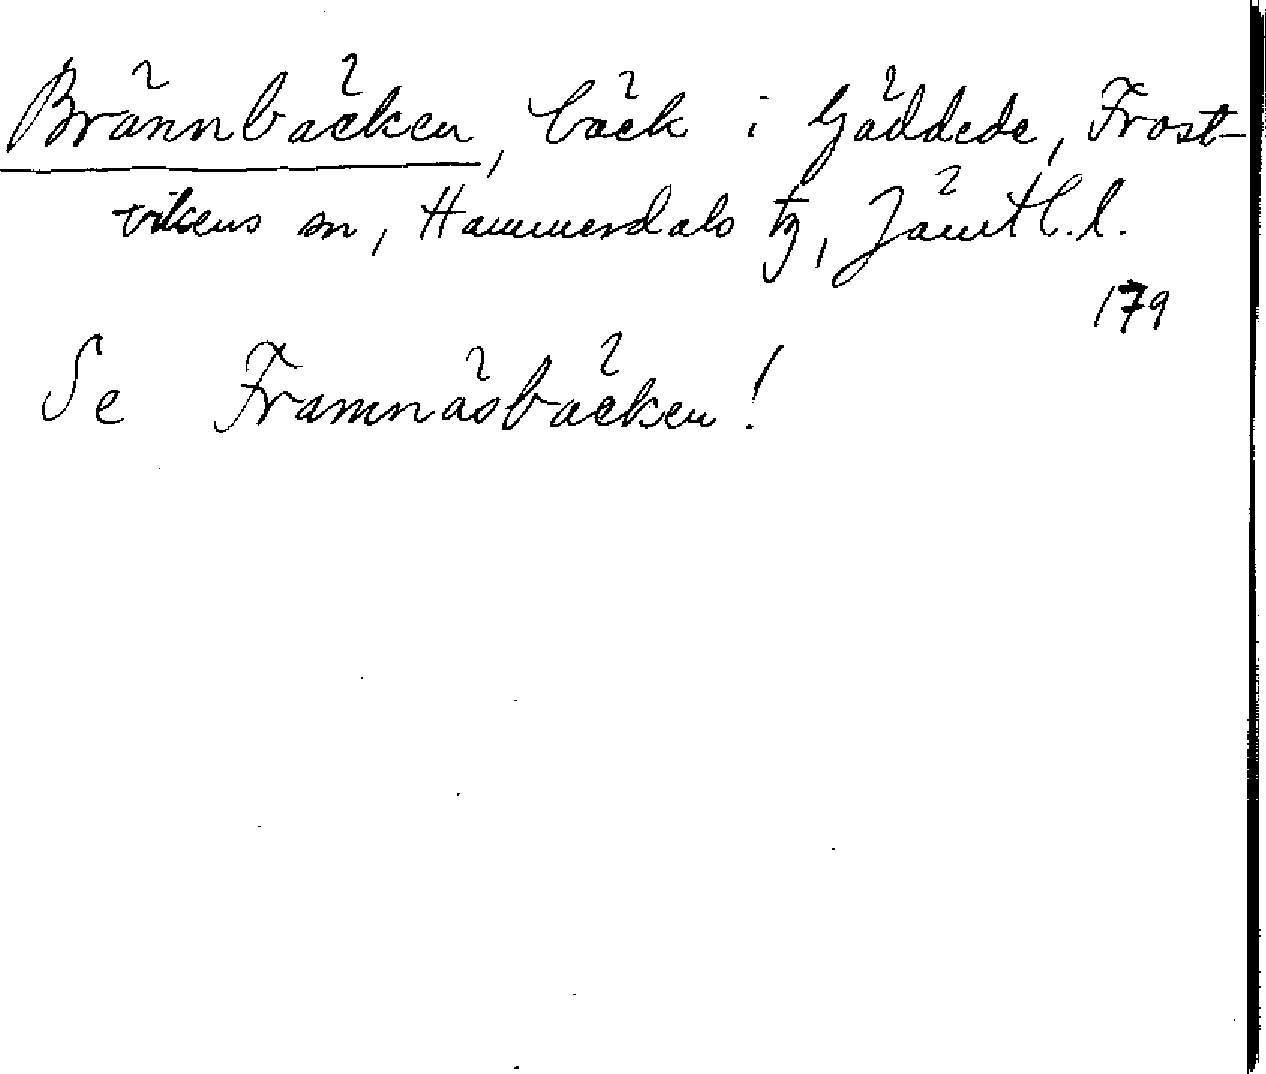 Brännbäcken, bäck i Gäddede, Frost-
vikens sn, Hammerdals tg, Jämtl. l.
179
Se Framnäsbäcken!